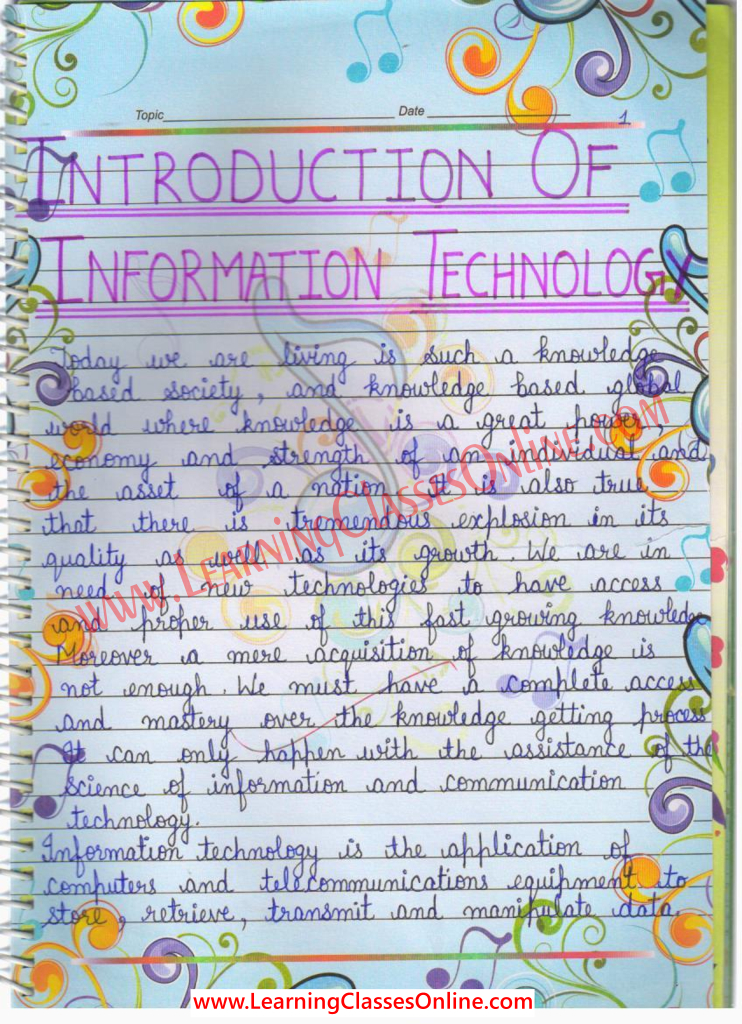 Topic Date
1
INTRODUCTION OF
INFORMATION TECHNOLOGY
Today we are living is such a knowledge
based society, and knowledge based global
world where knowledge is a great power,
economy and strength of an individual and
the asset of a nation. It is also true
that there is tremendous explosion in its
quality as well as its growth. We are in
need of new technologies to have access
and proper use of this fast growing knowledge
Moreover a mere acquisition of knowledge is
not enough. We must have a complete access
and mastery over the knowledge getting process
It can only happen with the assistance of the
science of information and communication
technology.
Information technology is the application of
computers and telecommunications equipment to
store, retrieve, transmit and manipulate data.
www.LearningClassesOnline.com
www.LearningClassesOnline.com